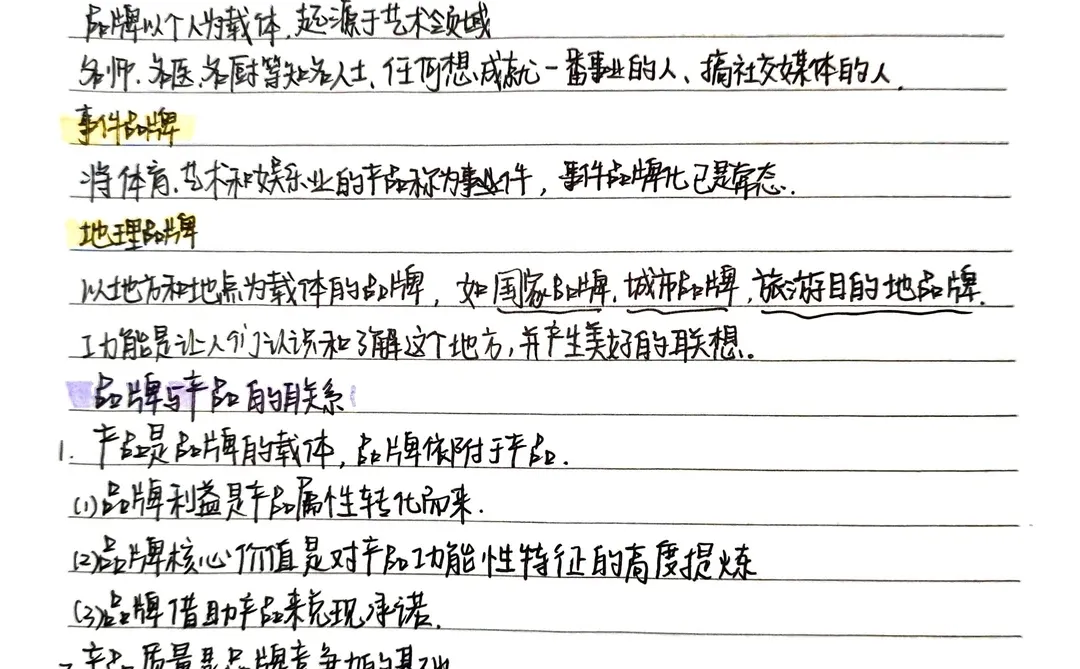 品牌以个人为载体，起源于艺术领域
名师、名医、名厨等知名人士、任何想成就一番事业的人、搞社交媒体的人.
事件品牌
将体育、艺术和娱乐业的产品称为事件，事件品牌化已是常态.
地理品牌
以地方和地点为载体的品牌，如国家品牌，城市品牌，旅游目的地品牌.
功能是让人们认识和了解这个地方，并产生美好的联想.
品牌与产品的联系
1. 产品是品牌的载体，品牌依附于产品.
(1)品牌利益是产品属性转化而来.
(2)品牌核心价值是对产品功能性特征的高度提炼
(3)品牌借助产品来兑现承诺.
2. 产品质量是品牌竞争力的基础